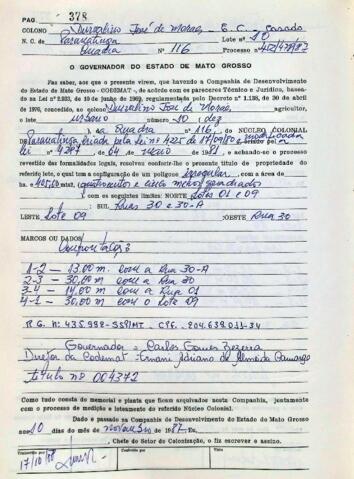 PAG. 378
COLONO Durvalino José de Moraes, E. C. Casado
N. C. de Paranatinga Lote nº 10
Quadra Nº 116 Processo nº
O GOVERNADOR DO ESTADO DE MATO GROSSO
Faz saber, aos que o presente virem, que havendo a Companhia de Desenvolvimento
do Estado de Mato Grosso - CODEMAT -, de acordo com os pareceres Técnico e Jurídico, basea-
do na Lei nº 2.933, de 10 de junho de 1969, regulamentado pelo Decreto nº 1.138, de 30 de abril
de 1970, concedido, ao colono Durvalino José de Moraes, agricultor,
o lote urbano nº 10 dez
na Quadra nº 116, do NÚCLEO COLONIAL
Paranatinga, criado pela Lei nº 4225 de 17/09/80 modificada
Lei nº 4347 de 04 de 1981, e achando-se o processo
revestido das formalidades legais, resolveu conferir-lhe o título de propriedade do
referido lote, o qual tem a configuração de um polígono irregular, com a área de
ha. 405,00 mts², quatrocentos e cinco metros quadrados
com os seguintes limites: NORTE Lotes 01 e 09
SUL Ruas 30 e 30-A
LESTE Lote 09 OESTE Rua 30
MARCOS OU DADOS
Confrontações
1-2 — 13,00 m. com a Rua 30-A
2-3 — 30,00 m com a Rua 30
3-4 — 14,00 m com a Rua 01
4-1 — 30,00 m com o Lote 09
R. G. Nº: 435.982-SSP/MT. - CPF. 204.638.011-34
Governador = Carlos Gomes Bezerra
Diretor da Codemat - Ernani Adriano de Almeida Camargo
título nº 004372
Como tudo consta do memorial e planta que ficam arquivados nesta Companhia, juntamente
com o processo de medição e loteamento do referido Núcleo Colonial.
Dado e passado na Companhia de Desenvolvimento do Estado de Mato Grosso
aos 10 dias do mês de novembro de 1987. Eu,
, Chefe do Setor de Colonização, o fiz escrever e assino.
Transcrito por Conferido por Visto
17/10/88